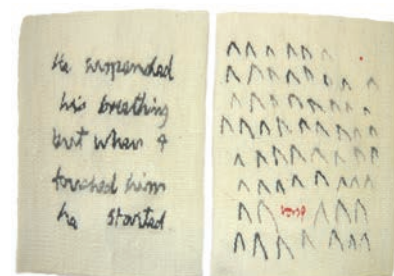 He suspended
his breathing
but when I
touched him
he started